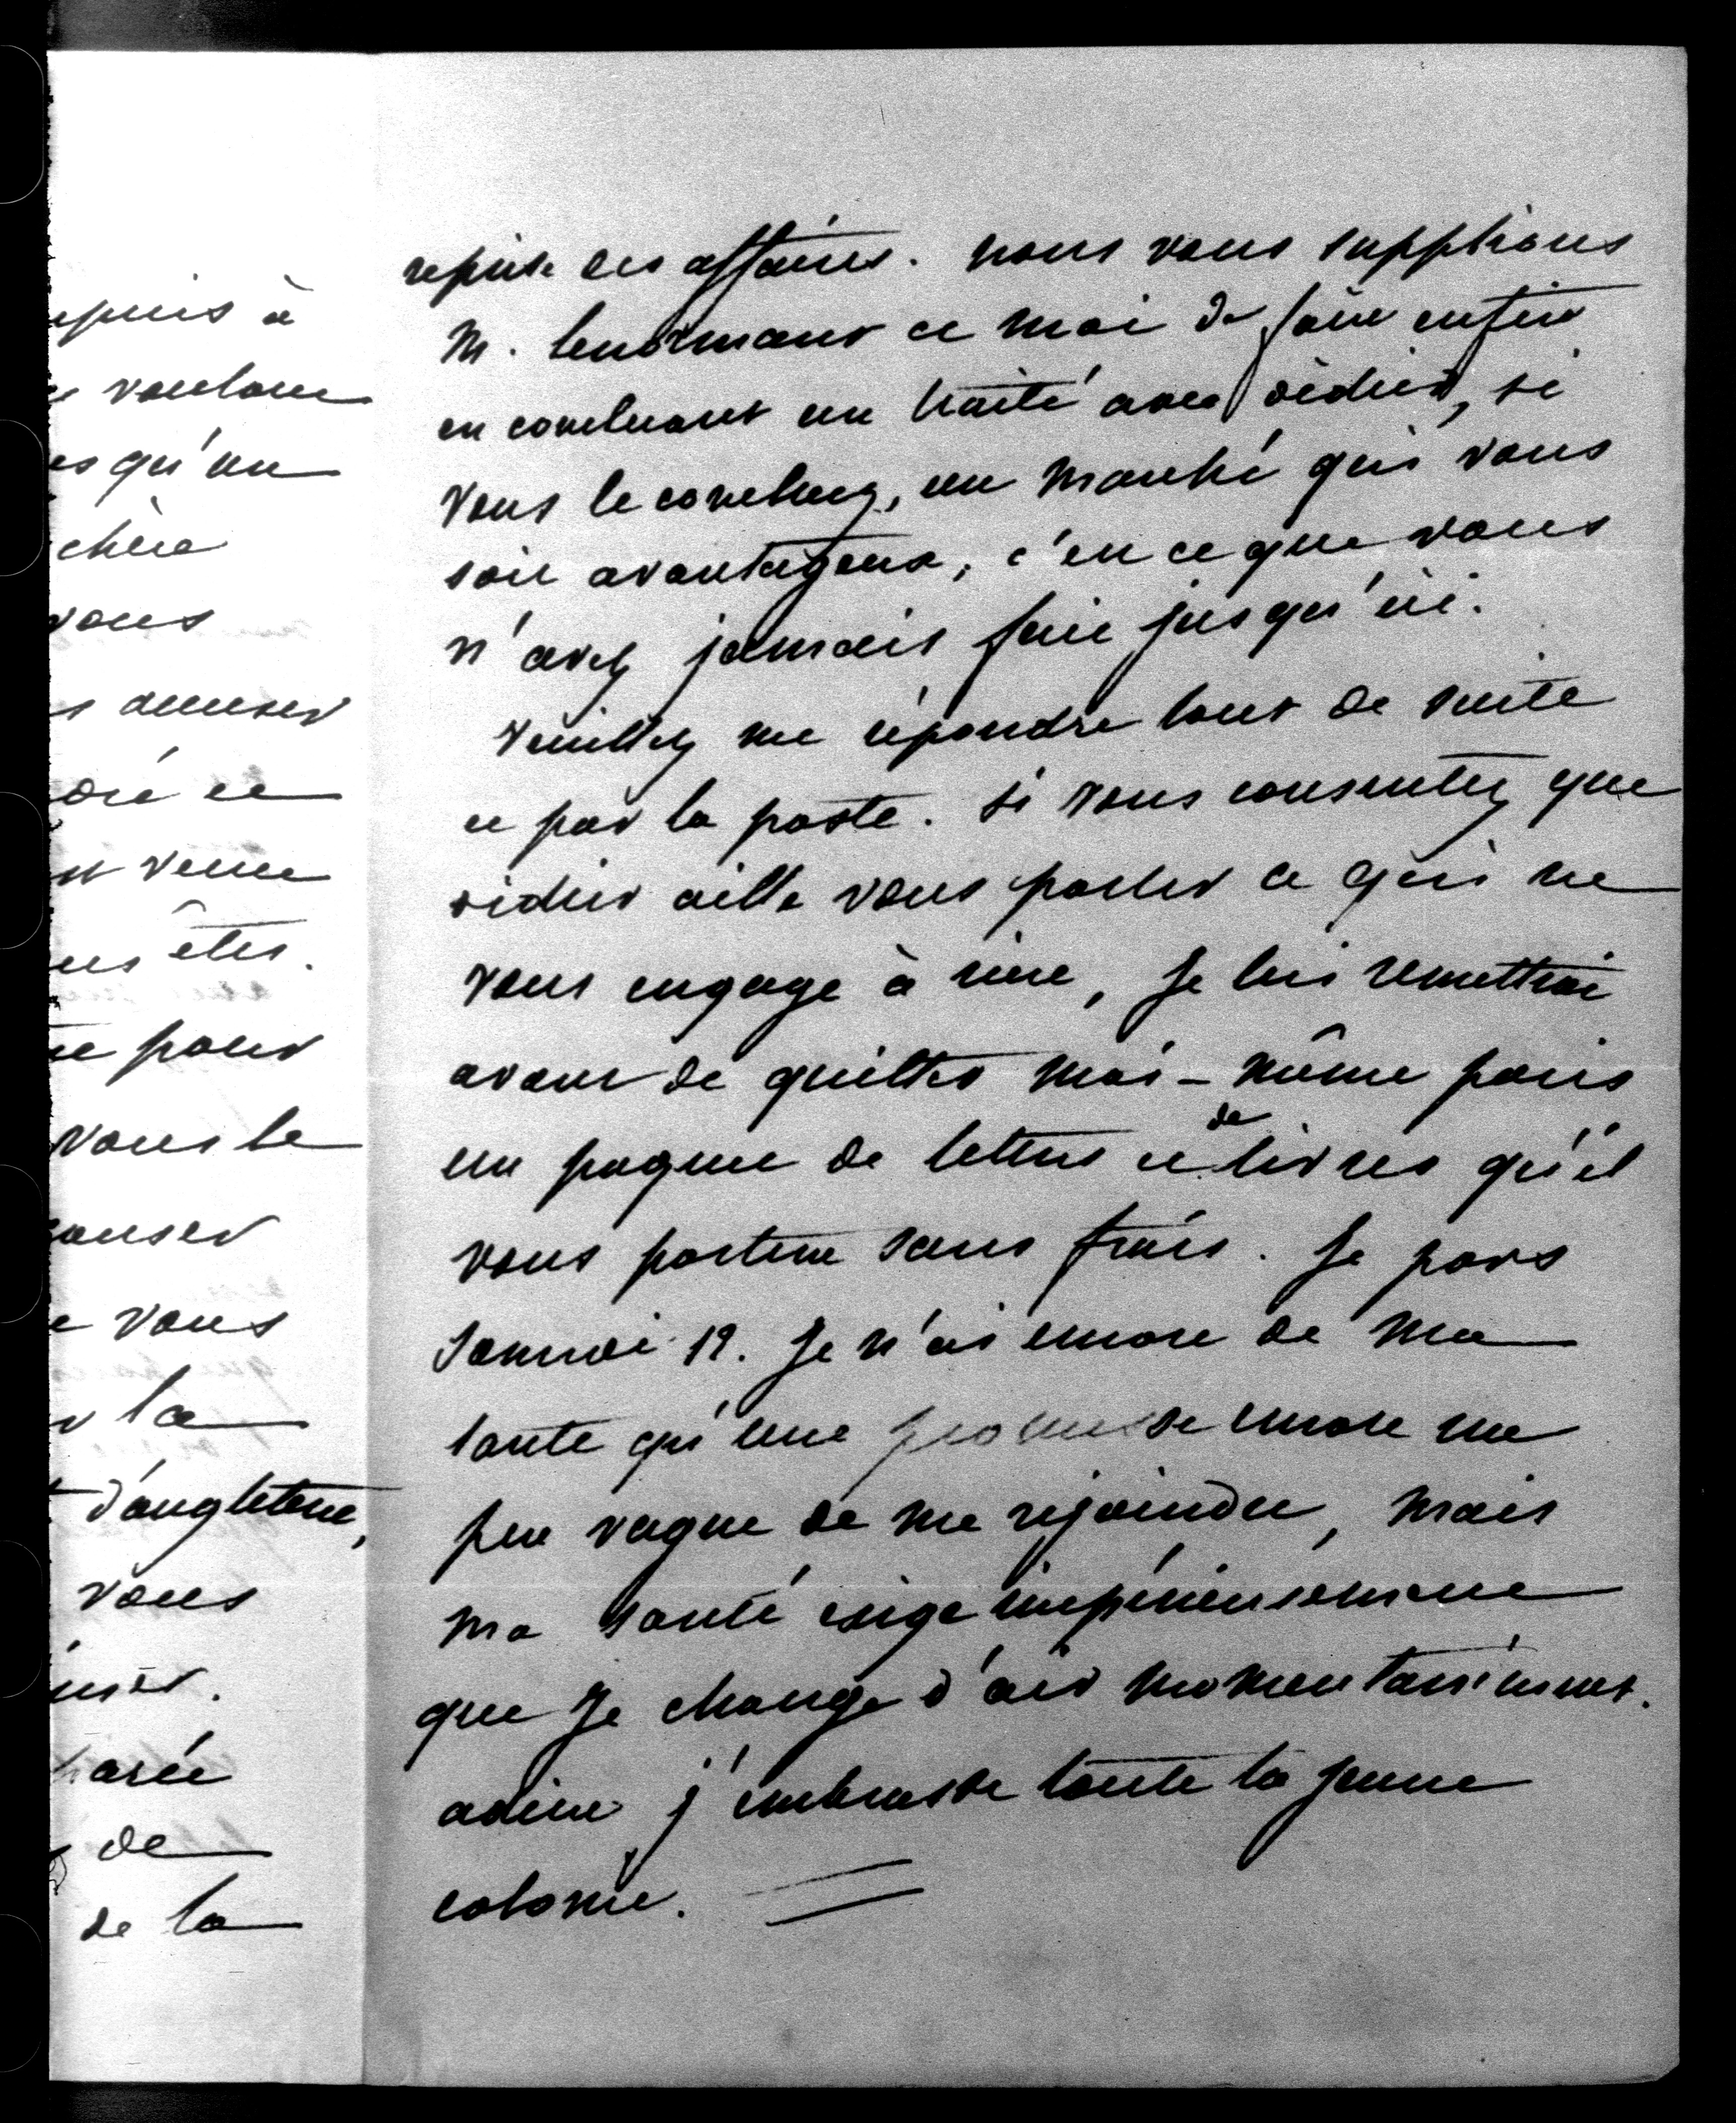 epuis à
voulons
es qu'un
chère
vous
s amuser
oré et
st venu
us êtes.
te pour
vous le
causer
e vous
r la
d'angleterre,
vous
parée
de
de la
reprise des affaires. nous vous supplions
M. lenormant et moi de faire enfin
en concluant un traité avec didier, si
vous le concluez, un marché qui vous
soit avantageux, c'est ce que vous
n'avez jamais fait jusqu'ici.
Veuillez me répondre tout de suite
et par la poste. si vous consentez que
didier aille vous parler ce qui ne
vous engage à rien, je lui remettrai
avant de quitter moi-même paris
un paquet de lettres et de livres qu'il
vous portera sans frais. Je pars
samedi 12. Je n'ai encore de ma
tante qu'une promesse encore un
peu vague de me rejoindre, mais
ma santé exige impérieusement
que je change d'air momentanément.
adieu j'embrasse toute la jeune
colonie.